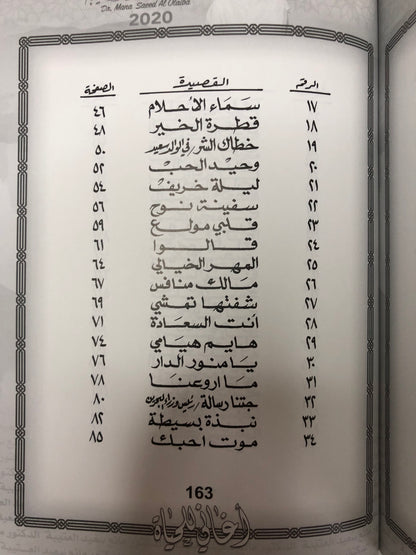 Dr. Mana Saeed Al Otaiba
2020
الرقم القصيدة الصفحة
١٧ سماء الأحلام ٤٦
١٨ قطرة الخير ٤٨
١٩ خطاك الشر / في الوالد سعيد ٥٠
٢٠ وحيد الحب ٥٢
٢١ ليلة خريف ٥٤
٢٢ سفينة نوح ٥٦
٢٣ قلبي مولع ٥٩
٢٤ قالوا ٦١
٢٥ المهر الخيالي ٦٤
٢٦ مالك منافس ٦٧
٢٧ شفتها تمشي ٦٩
٢٨ أنت السعادة ٧١
٢٩ هايم هيامي ٧٤
٣٠ يا منور الدار ٧٦
٣١ ما اروعنا ٧٨
٣٢ جتنا رسالة / رئيس وزراء البحرين ٨٠
٣٣ نبذة بسيطة ٨٢
٣٤ موت احبك ٨٥
163
أغاني للحياة